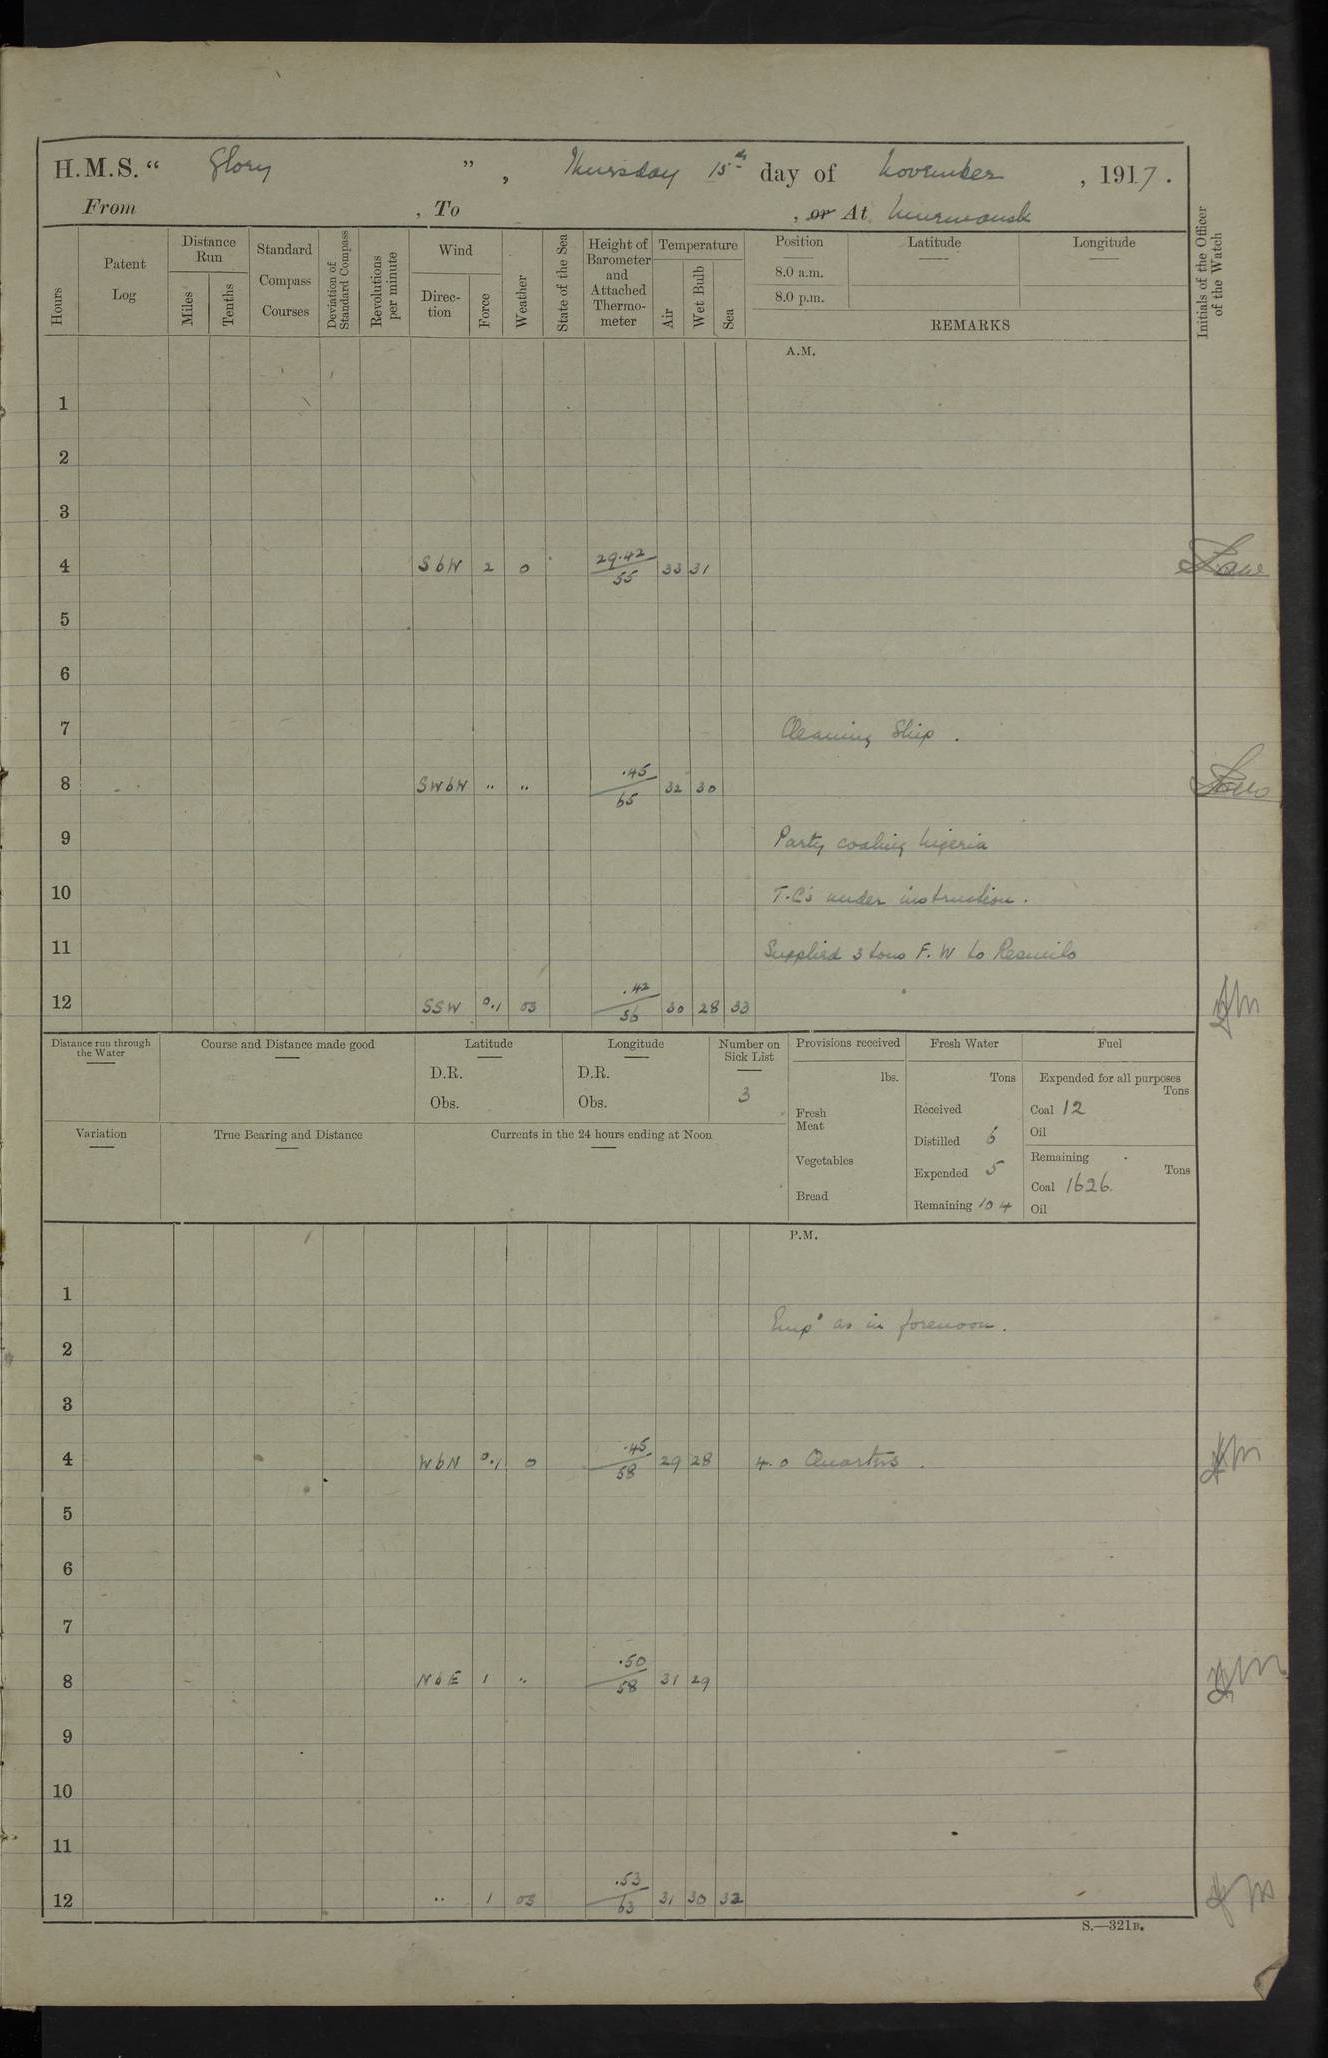 H.M.S. “ Glory ” , Thursday 15th day of November , 1917.
From , To , or At Murmansk
Hours
Patent Log
Distance Run
Miles
Tenths
Standard Compass Courses
Deviation of Standard Compass
Revolutions per minute
Wind
Direc-tion
Force
Weather
State of the Sea
Height of Barometer and Attached Thermo-meter
Temperature
Air
Wet Bulb
Sea
Position
8.0 a.m.
8.0 p.m.
Latitude
Longitude
REMARKS
Initials of the Officer of the Watch
A.M.
1
2
3
4 SbW 2 o 29.42/55 33 31
5
6
7 Cleaning Ship .
8 SWbW " " .45/65 32 30
9 Party coaling Nigeria
10 T.C's under instruction .
11 Supplied 3 tons F. W to
12 SSW 0.1 .42/56 30 28 33
Distance run through the Water
Course and Distance made good
Latitude
D.R.
Obs.
Longitude
D.R.
Obs.
Number on Sick List
3
Variation
True Bearing and Distance
Currents in the 24 hours ending at Noon
Provisions received
lbs.
Fresh Meat
Vegetables
Bread
Fresh Water
Tons
Received
Distilled 6
Expended 5
Remaining 104
Fuel
Expended for all purposes
Tons
Coal 12
Oil
Remaining
Tons
Coal 1626
Oil
P.M.
1
Emp'd as in forenoon .
2
3
4 WbN 0.1 o .45/58 29 28 4.0 Quarters .
5
6
7
8 NbE 1 " .50/58 31 29
9
10
11
12 " 1 .53/63 31 30 32
S.—321B.